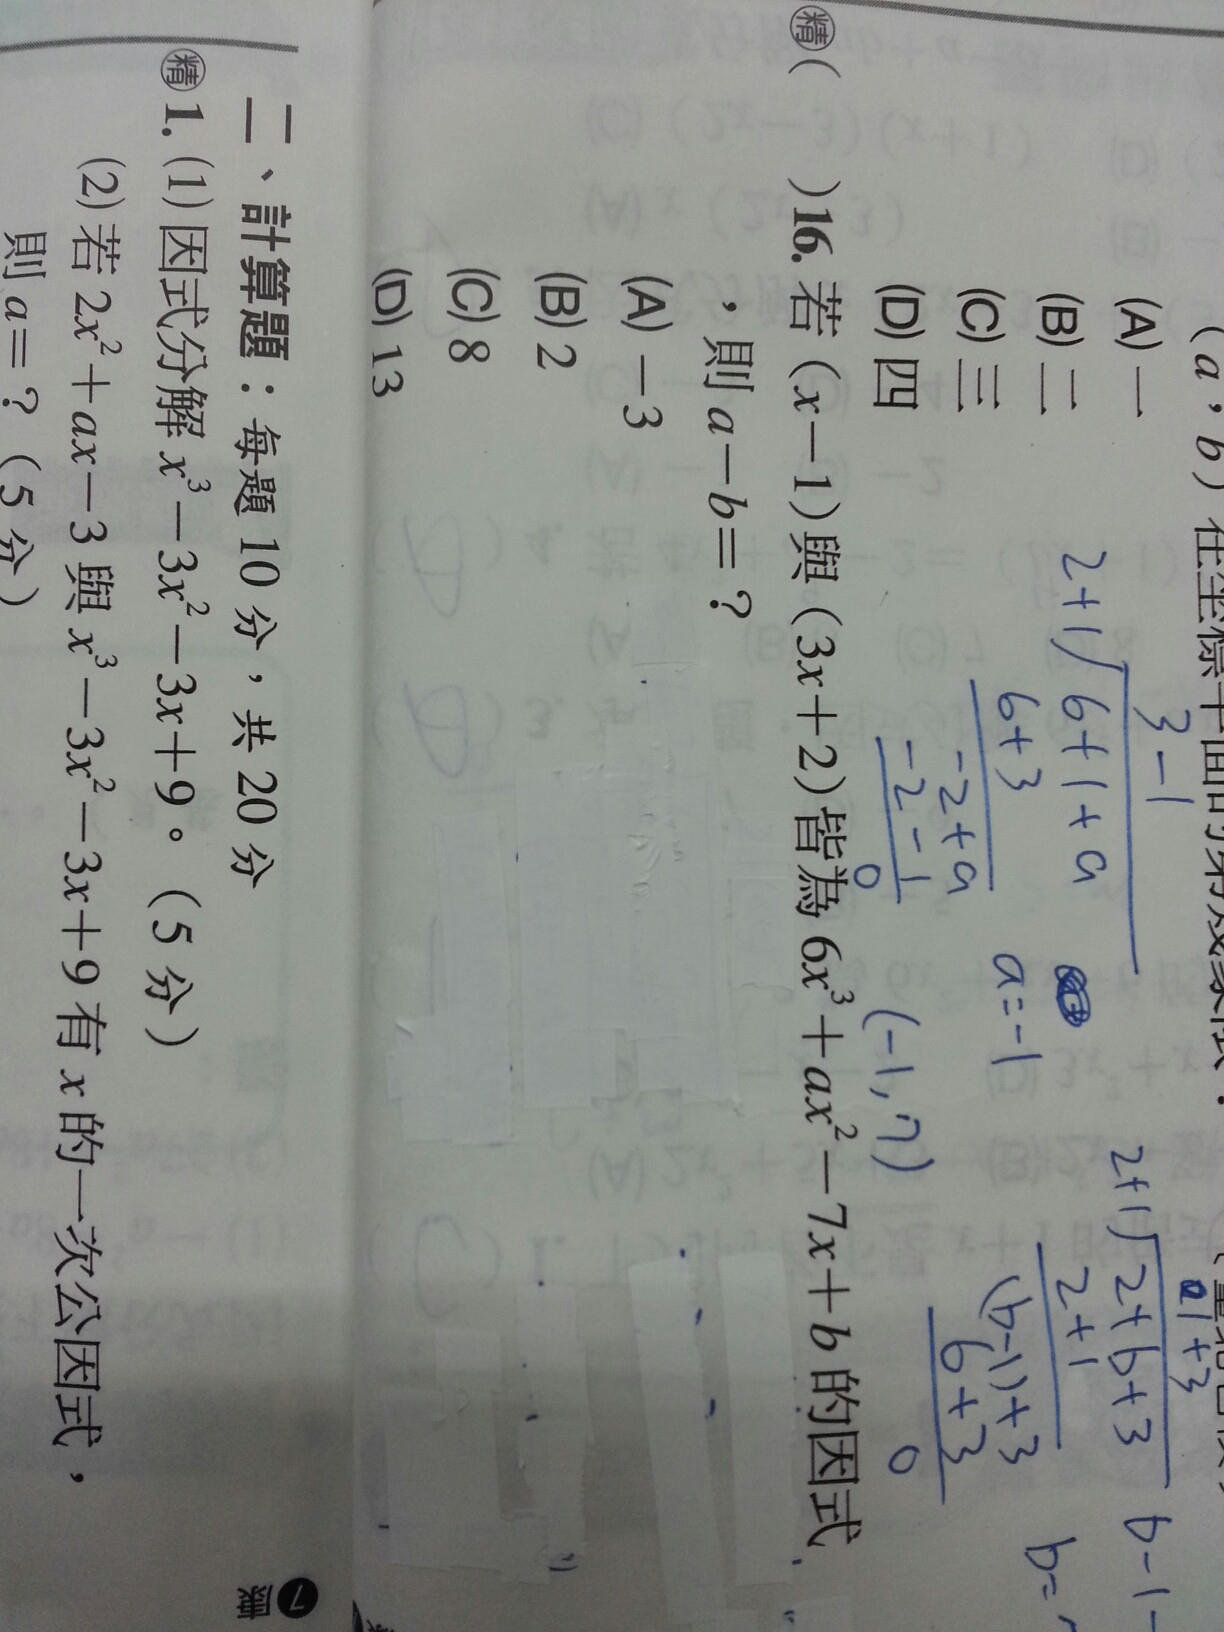 (a，b) 在坐標平面的第幾象限？
(A) 一
(B) 二
(C) 三
(D) 四
2+1 6+1+a
3-1
6+3
-2+a
-2-1
0
a=-1
(-1,7)
2+1 2+b+3
1+3
2+1
(b-1)+3
6+3
0
b-1
b=
精 ( )16. 若 (x－1) 與 (3x＋2) 皆為 6x³＋ax²－7x＋b 的因式
，則 a－b＝？
(A) －3
(B) 2
(C) 8
(D) 13
二、計算題：每題 10 分，共 20 分
精 1. (1) 因式分解 x³－3x²－3x＋9。（5 分）
(2) 若 2x²＋ax－3 與 x³－3x²－3x＋9 有 x 的一次公因式，
則 a＝？（5 分）
7 康